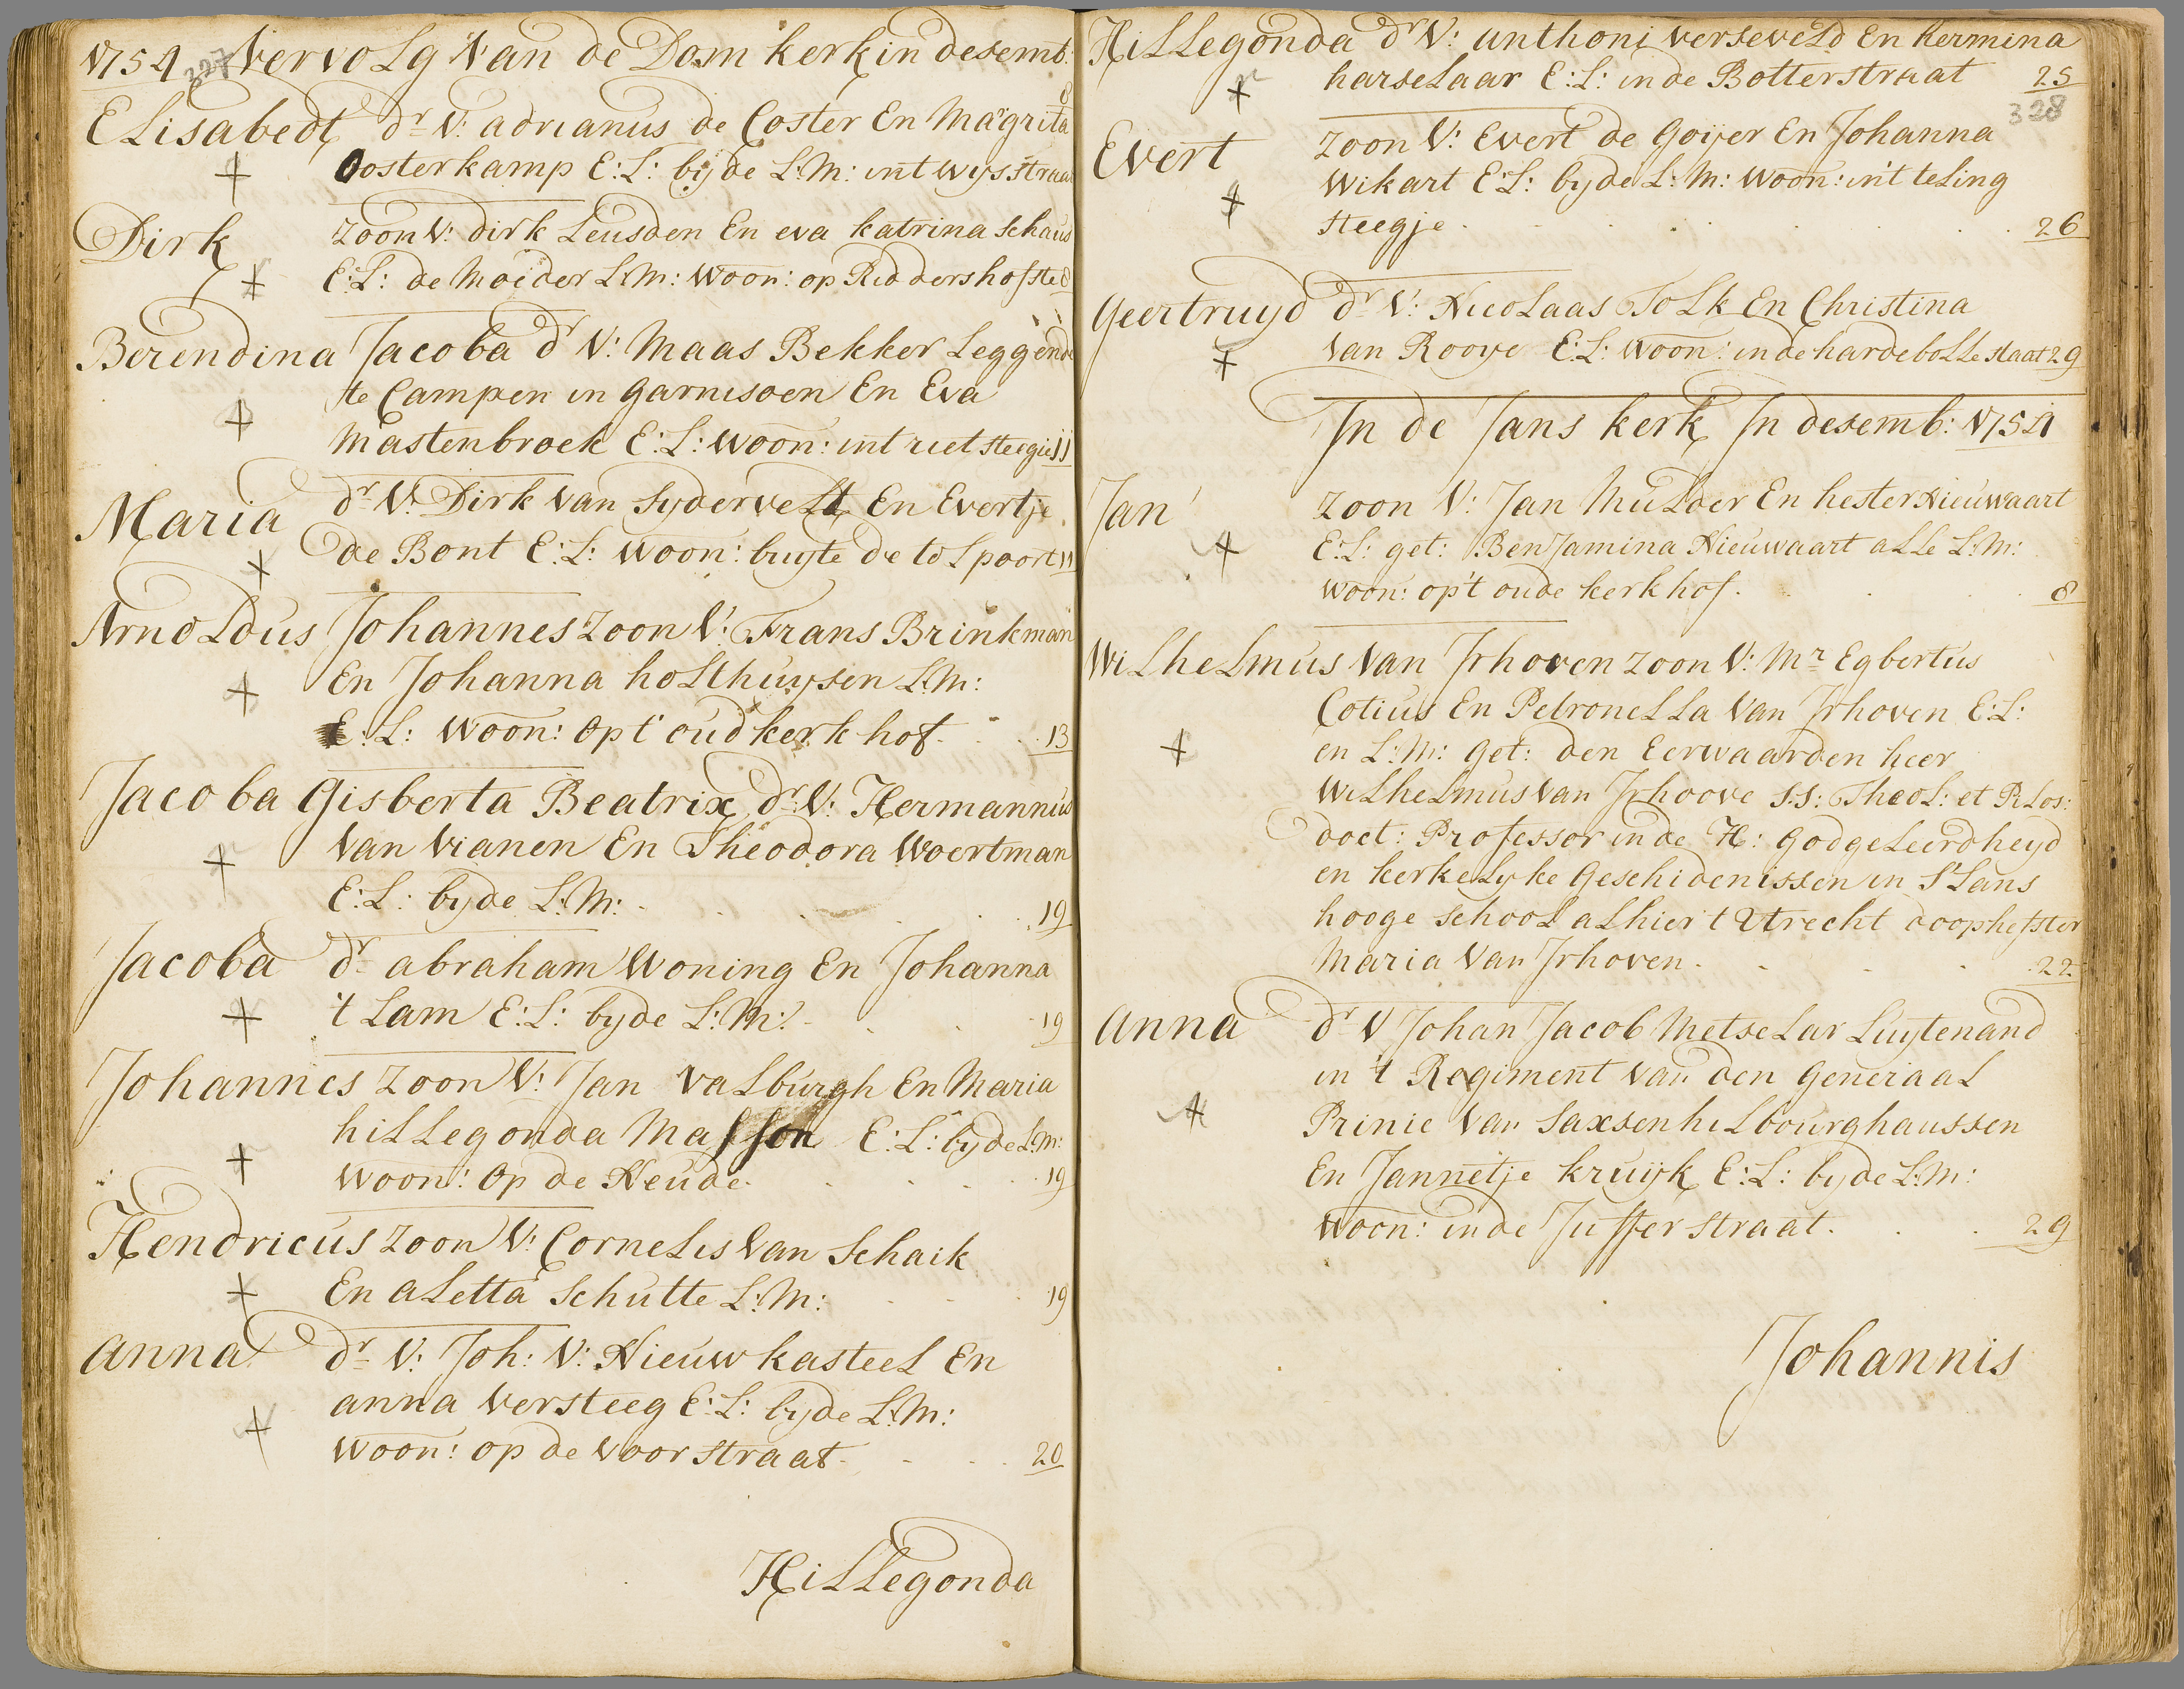 1754 327 Vervolg Van de Dom kerk in desemb:
Elisabedt dr V: adrianus de Coster En Magrita 8
Oosterkamp E:L: bijde L:M: int wijsstraat
Dirk zoon V: dirk Leusden En eva katrina Schaus
E:L: de Moeder L:M: Woon: op Riddershofste 8
Berendina Jacoba dr V: Maas Bekker Leggende
te Campen in garnisoen En Eva
Mastenbroek E:L: Woon: int rietsteegie 11
Maria dr V: Dirk Van Sijdervelt En Evertje
de Bont E:L: Woon: buijte de tolspoort 11
Arnoldus Johannes zoon V: Frans Brinkman
En Johanna holthuijsen L:M:
E:L: Woon: Op t' oudkerk hof. 13
Jacoba Gisberta Beatrix dr V: Hermannus
Van Vianen En Theodora Woertman
E:L: bijde L:M: 19
Jacoba dr abraham Woning En Johanna
't Lam E:L: bijde L:M: 19
Johannes zoon V: Jan Valburgh En Maria
hillegonda Masson E:L: bijde L:M:
Woon: Op de Neude. 19
Hendricus zoon V: Cornelis Van Schaik
En aletta Schutte L:M: 19
anna dr V: Joh: V: Nieuwkasteel En
anna Versteeg E:L: bijde L:M:
Woon: op de Voorstraat. 20
Hillegonda
Hillegonda dr V: anthoni verseveld En hermina
harselaar E:L: in de Botterstraat 25
328
Evert zoon V: Evert de Goijer En Johanna
Wikart E:L: bijde L:M: Woon: in't teling
steegje. 26
Geertruyd dr V: Nicolaas Tolk En Christina
Van Rooye E:L: Woon: in de hardebolle staat 29
In de Jans kerk In desemb: 1754
Jan zoon V: Jan Mulder En hester Nieuwaart
E:L: get: Benjamina Nieuwaart alle L:M:
Woon: op't oude kerkhof. 8
Wilhelmus Van Irhoven zoon V: Mr Egbertus
Cotius En Petronella Van Irhoven E:L:
en L:M: get: den Eerwaarden heer
Wilhelmus Van Irhoove S:S: Theol: et Pilos:
doct: Professor in de H: godgeleerdheyd
en kerkelyke Geschidenissen in S'Lans
hooge school alhier t Utrecht doophefster
Maria Van Irhoven. 22
anna dr V Johan Jacob Metselar Luytenand
in 't Regiment Van den Generaal
Prinie Van Saxsenhilbourghaussen
En Jannetje kruijk E:L: bijde L:M:
Woon: in de Jufferstraat. 29
Johannis